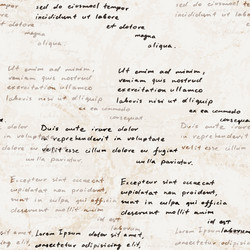 sed do eiusmod tempor
incididunt ut labore
et dolore
magna
aliqua.
Ut enim ad minim,
veniam quis nostrud
exercitation ullamco
laboris nisi ut aliquip
ex ea commodo
consequat
Ut enim ad minim,
veniam quis nostrud
exercitation ullamco
laboris nisi ut aliquip
ex ea commodo
consequat
Duis aute irure dolor
in reprehenderit in voluptate
velit esse cillum dolore eu fugiat
nulla pariatur.
Excepteur sint occaecat
cupidatat non proident,
sunt in culpa qui officia
deserunt mollit anim
Excepteur sint occaecat
cupidatat non proident,
sunt in culpa qui officia
deserunt mollit anim
Lorem Ipsum dolor sit amet,
consectetur adipisicing elit,
Lorem Ipsum